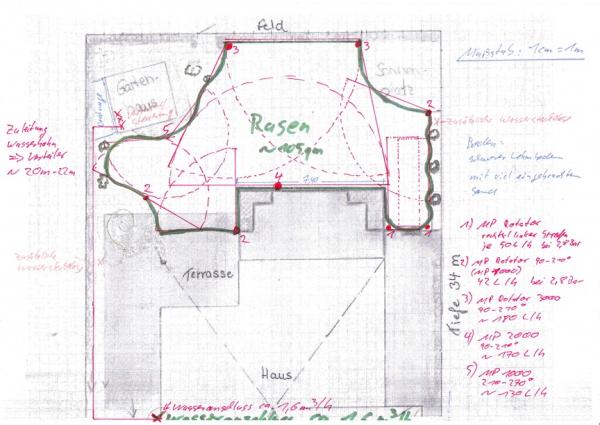 Feld
Maßstab: 1cm = 1m
3
3
Garten-
haus
Schwimm-
platz
2
zusätzliche Wasserstecker
Zuleitung
Wasserhahn
=> Verteiler
~ 20m-22m
5
Rasen
~ 109 qm
Boden-
schwerer Lehmboden
mit viel eingebrachtem
Sand
4
7,40
2
2
1
1
1) MP Rotator
je 50 L/h bei 2,8 Bar
2) MP Rotator 90-210°
(MP 1000)
42 L/h bei 2,8 Bar
3) MP Rotator 3000
90-210°
~ 180 L/h
4) MP 2000
90-210°
~ 170 L/h
5) MP 1000
210-270°
~ 130 L/h
Terrasse
Tiefe 34 m
Haus
# Wasseranschluss ca. 1,6 m³/h
Wasseranschluss ca. 1,6 m³/h